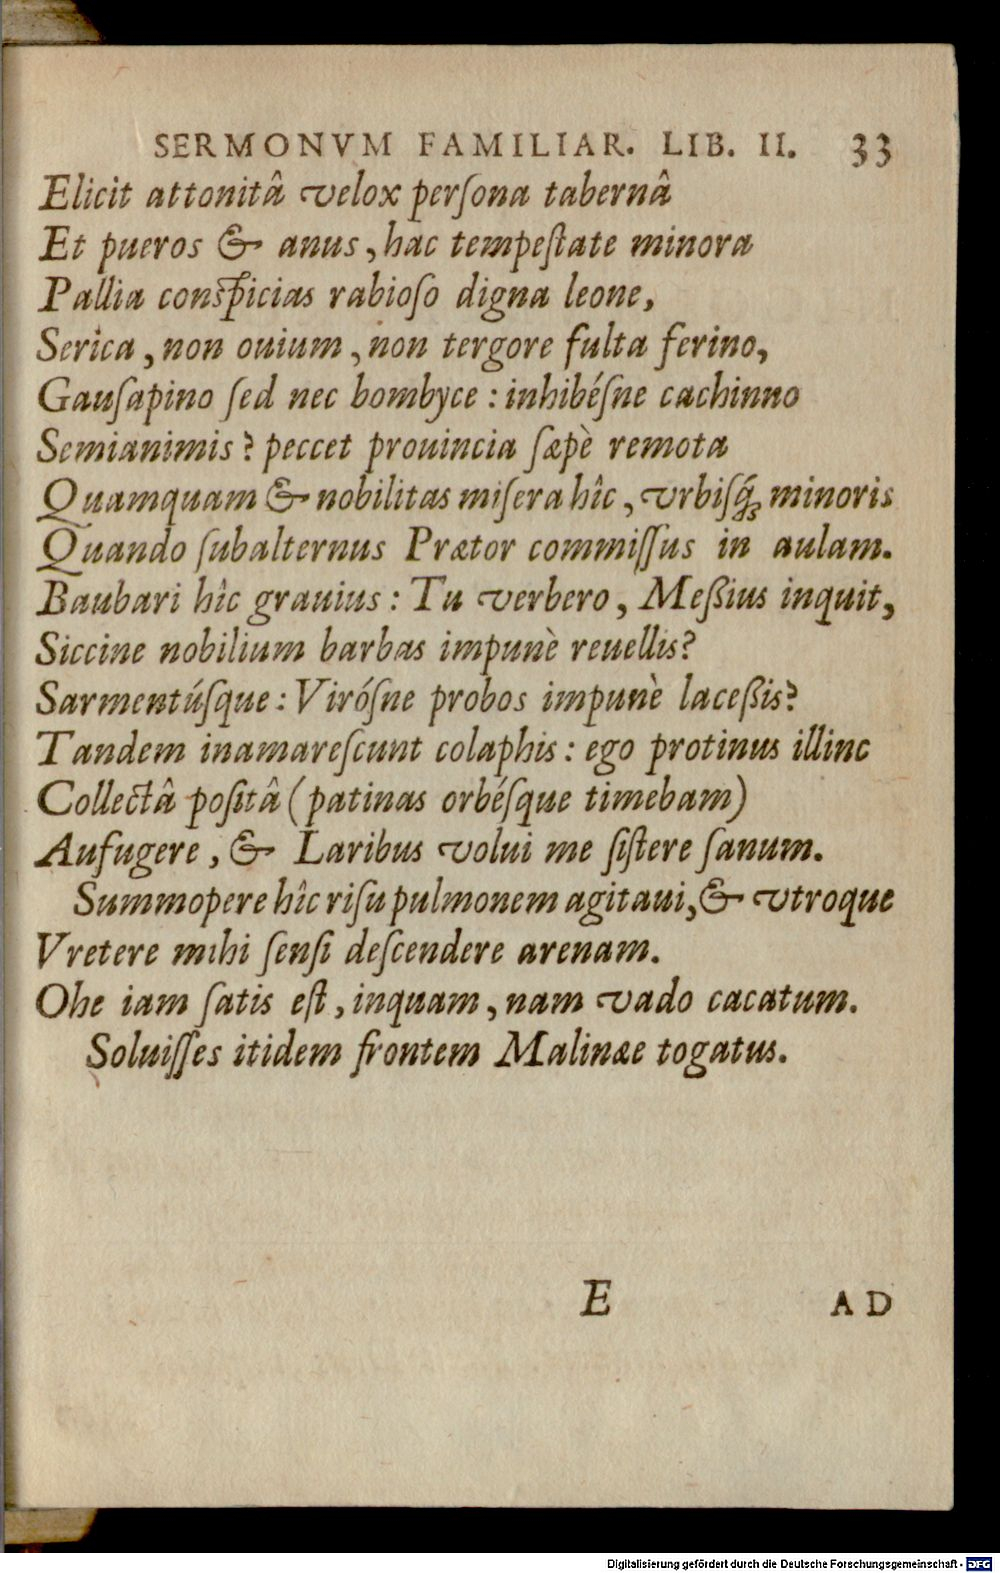 SERMONVM FAMILIAR. LIB. II. 33
Elicit attonitâ velox perſona tabernâ
Et pueros & anus, hac tempeſtate minora
Pallia conſpicias rabioſo digna leone,
Serica, non ouium, non tergore fulta ferino,
Gauſapino ſed nec bombyce: inhibéſne cachinno
Semianimis? peccet prouincia ſæpè remota
Quamquam & nobilitas miſera hîc, vrbiſq́ꝫ minoris
Quando ſubalternus Prætor commiſſus in aulam.
Baubari hîc grauius: Tu verbero, Meßius inquit,
Siccine nobilium barbas impunè reuellis?
Sarmentúſque: Viróſne probos impunè laceßis?
Tandem inamareſcunt colaphis: ego protinus illinc
Collectâ poſitâ (patinas orbéſque timebam)
Aufugere, & Laribus volui me ſiſtere ſanum.
Summopere hîc riſu pulmonem agitaui, & vtroque
Vretere mihi ſenſi deſcendere arenam.
Ohe iam ſatis eſt, inquam, nam vado cacatum.
Soluiſſes itidem frontem Malinæ togatus.
E AD
Digitalisierung gefördert durch die Deutsche Forschungsgemeinschaft - DFG